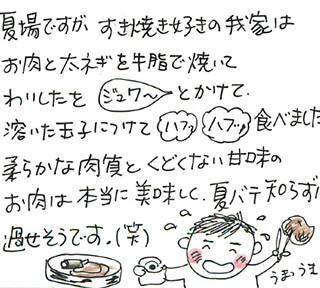 夏場ですが すき焼き好きの我家は
お肉と太ネギを牛脂で焼いて
わりしたを ジュワ～ とかけて.
溶いた玉子につけて ハフッ ハフッ 食べました
柔らかな肉質と くどくない甘味の
お肉は本当に美味しく.夏バテ知らずに
過せそうです.(笑)
うまっうま